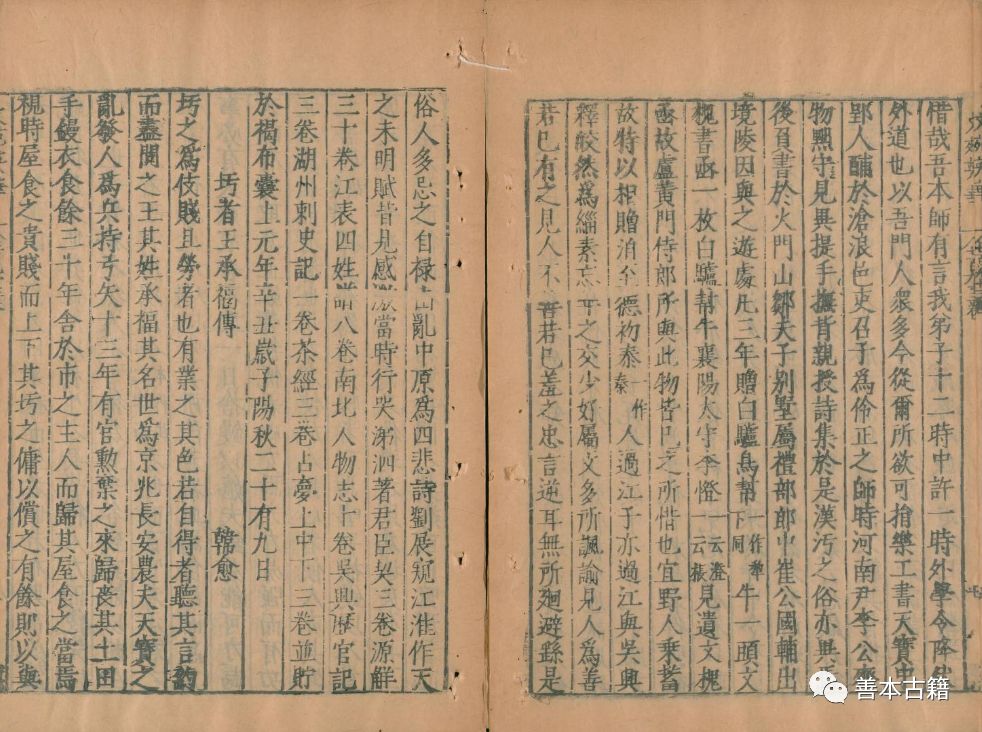 惜哉吾本師有言我弟子十二時中許一時外學令降伏
外道也以吾門人衆多今從爾所欲可捐樂工書天寶中
郢人酺於滄浪邑吏召子爲伶正之師時河南尹李公
物黜守見異提手撫背親授詩集於是漢沔之俗亦異
後負書於火門山鄒夫子別墅屬禮部郎中崔公國輔出
境陵因與之遊處凡三年贈白驢烏幇一作犎下同牛一頭文
槐書函一枚白驢幇牛襄陽太守李憕一云澄一云棖見遺文槐
函故盧黃門侍郎所與此物皆巳之所惜也宜野人乗蓄
故特以相贈洎至德初泰一作秦人過江子亦過江與吳興
釋皎然爲緇素忘年之交少好屬文多所諷諭見人爲善
若巳有之見人不善若巳羞之忠言逆耳無所廻避繇是
俗人多忌之自禄山亂中原爲四悲詩劉展窺江淮作天
之未明賦皆見感激當時行哭涕泗著君臣契三卷源解
三十卷江表四姓譜八卷南北人物志十卷吳興歷官記
三卷湖州刺史記一卷茶經三卷占夢上中下三卷並貯
於褐布囊上元年辛丑歳子陽秋二十有九日
圬者王承福傳 韓愈
圬之爲伎賤且勞者也有業之其色若自得者聽其言約
而盡問之王其姓承福其名世爲京兆長安農夫天寶之
亂發人爲兵持弓矢十三年有官勲棄之來歸喪其土田
手鏝衣食餘三十年舍於市之主人而歸其屋食之當焉
視時屋食之貴賤而上下其圬之傭以償之有餘則以與
善本古籍